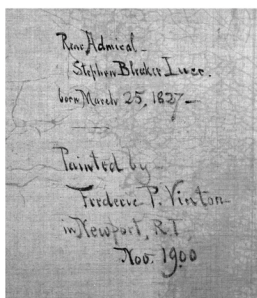 Rear Admiral –
Stephen Bleeker Luce.
born March 25, 1827 –
Painted by –
Frederic P. Vinton
in Newport, R.I.
Nov. 1900